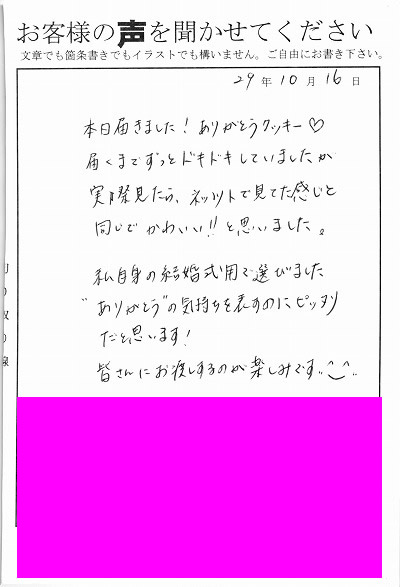 お客様の声を聞かせてください
文章でも箇条書きでもイラストでも構いません。ご自由にお書き下さい。
29年10月16日
本日届きました！ありがとうクッキー♡
届くまでずっとドキドキしていましたが
実際見たら、ネットで見てた感じと
同じでかわいい!!と思いました。
私自身の結婚式用で選びました
"ありがとう"の気持ちを表すのにピッタリ
だと思います！
皆さんにお渡しするのが楽しみです